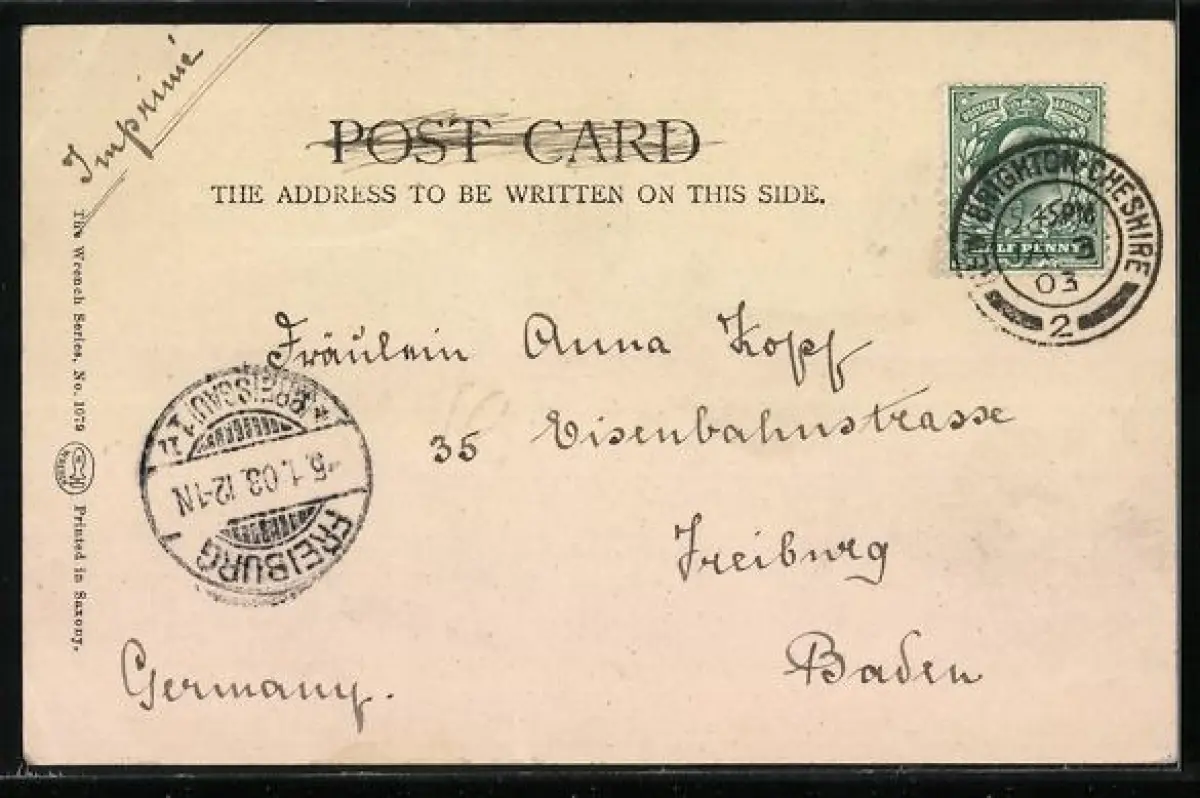 Imprimé
POST CARD
THE ADDRESS TO BE WRITTEN ON THIS SIDE.
POSTAGE REVENUE
HALF PENNY
NEW BRIGHTON·CHESHIRE
5.45PM
3
03
2
Fräulein Anna Kopf
35 Eisenbahnstrasse
Freiburg
Baden
Germany.
FREIBURG
5.1.03.12-1N
(BREISGAU) 1
The Wrench Series, No. 1079
Printed in Saxony.